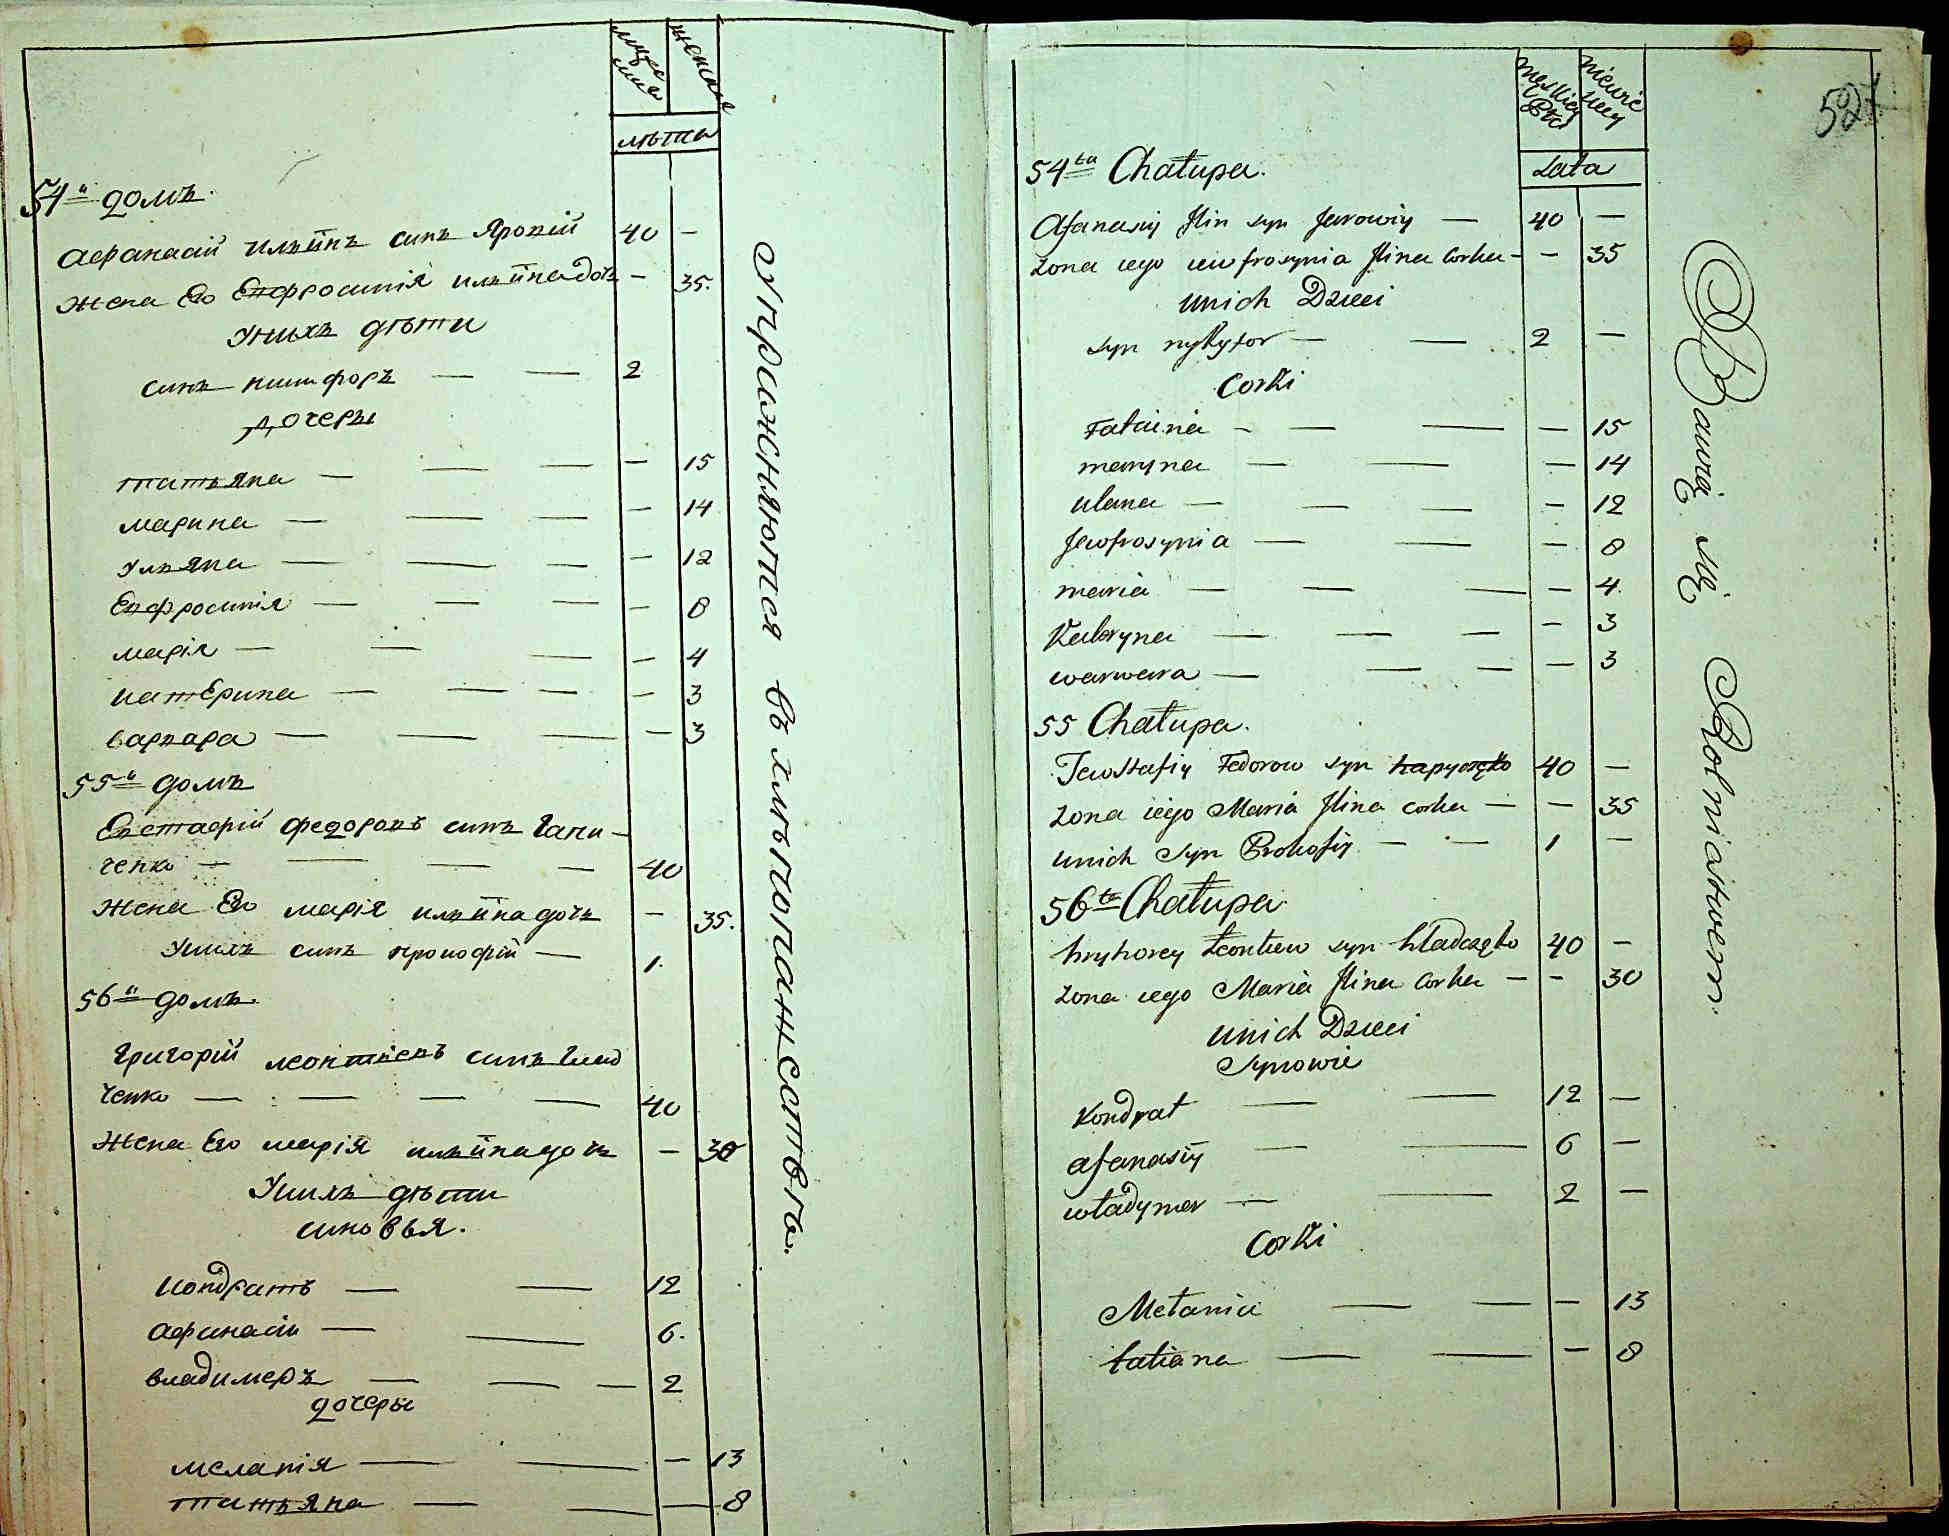 лѣта
54й домъ.
Афанасий Ильинъ синъ Яровий 40 —
Жена Его Евфросиния ильина дочь — 35.
У нихъ дѣти
синъ никифоръ — — 2
дочеры
татьяна — — — — 15
марина — — — — 14
ульяна — — — — 12
Евфросинія — — — — 8
марія — — — — 4
катерина — — — — 3
варвара — — — — 3
55й домъ
Евстафій федоровъ синъ Гапи-
ченко — — — — 40
Жена Его марія ильина дочь — 35.
У нихъ синъ прокофій — 1.
56й домъ.
Григорій леонтиевъ синъ Глад
ченко — — — — 40
Жена Его марія ильина дочь — 30
У нихъ дѣти
синовья.
кондратъ — — 12
афанасій — — 6.
владимеръ — — — 2
дочеры
меланія — — — 13
татьяна — — — 8
Упражняются въ хлѣбопашествѣ.
52
męskiey Płci
niewie
Lata
54ta Chałupa.
Afanasiy Ilin syn Jarowiy — 40 —
Zona iego iewfrosynia Ilina Corka — — 35
unich Dzieci
syn nykyfor — — 2 —
Corki
Tatiana — — — — 15
maryna — — — 14
ulana — — — — 12
Jewfrosynia — — — 8
maria — — — — 4
Kateryna — — — — 3
warwara — — — — 3
55 Chałupa.
Jewstafiy Fedorow syn hapyczęko 40 —
Zona iego Maria Ilina corka — — 35
unich syn Prokofiy — — 1 —
56ta Chałupa
hryhorey Leontiew syn hładczęko 40 —
Zona iego Maria Ilina Corka — — 30
unich Dzieci
Synowie
Kondrat — — 12 —
afanasiy — — 6 —
władymer — — 2 —
Corki
Mełania — — — 13
tatiana — — — 8
Bawią się Rolnictwem.